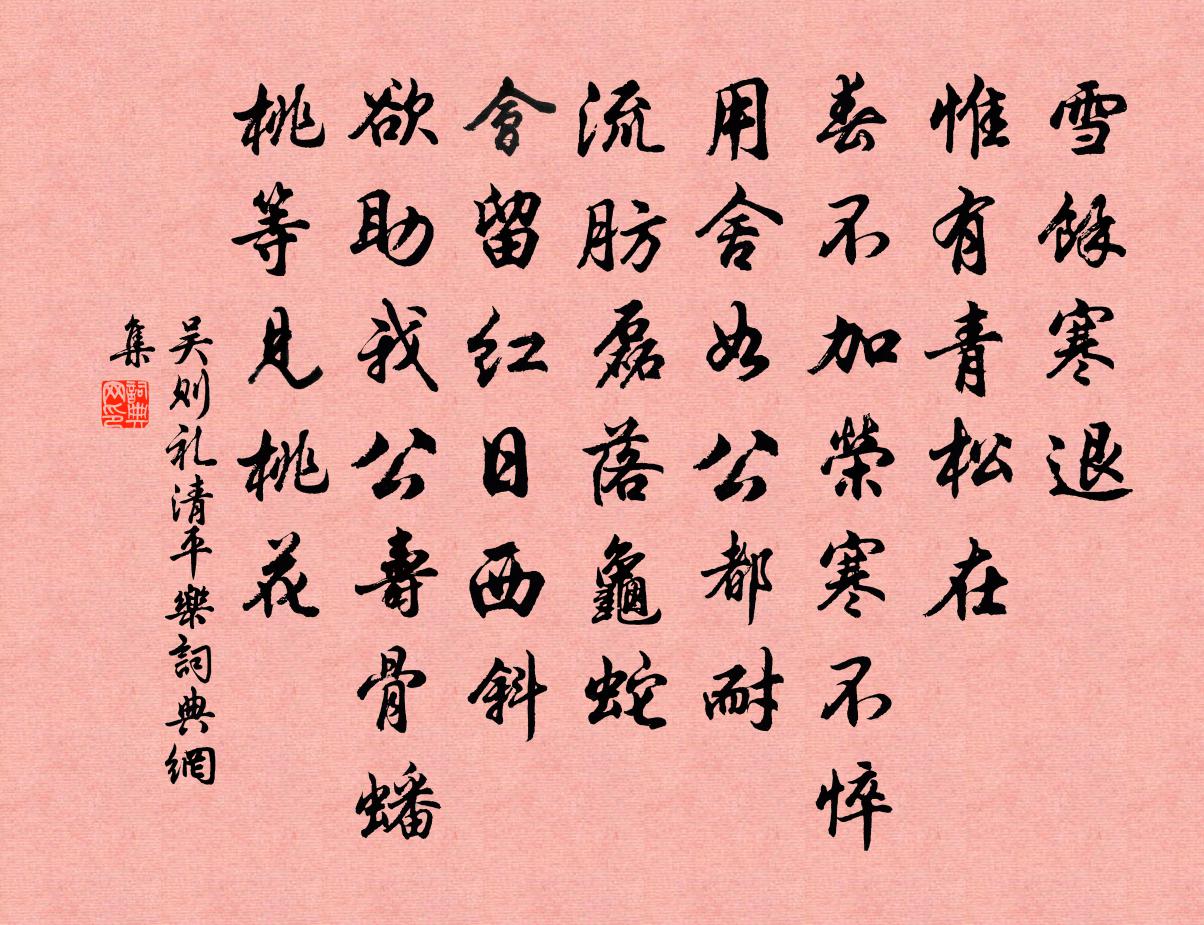 雪餘寒退
惟有青松在
春不加榮寒不悴
用舍如公都耐
流肪磊落龜蛇
會留紅日西斜
欲助我公壽骨蟠
桃等見桃花
吴则礼清平樂詞典網
集
詞典網印